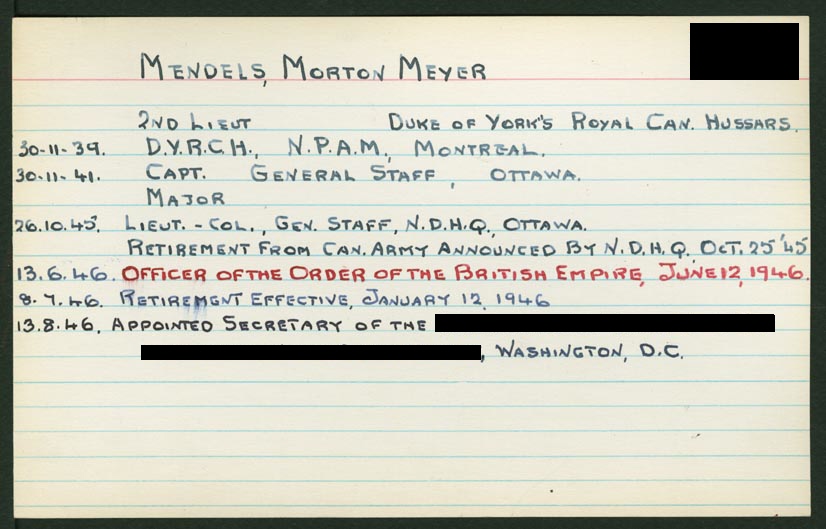 MENDELS, MORTON MEYER
2ND LIEUT DUKE OF YORK'S ROYAL CAN. HUSSARS.
30-11-39. D.Y.R.C.H., N.P.A.M., MONTREAL.
30-11-41. CAPT. GENERAL STAFF, OTTAWA.
MAJOR
26.10.45. LIEUT.-COL., GEN. STAFF, N.D.H.Q., OTTAWA.
RETIREMENT FROM CAN. ARMY ANNOUNCED BY N.D.H.Q. OCT. 25 '45
13.6.46. OFFICER OF THE ORDER OF THE BRITISH EMPIRE, JUNE 12, 1946.
8.7.46. RETIREMENT EFFECTIVE, JANUARY 12, 1946
13.8.46. APPOINTED SECRETARY OF THE
, WASHINGTON, D.C.